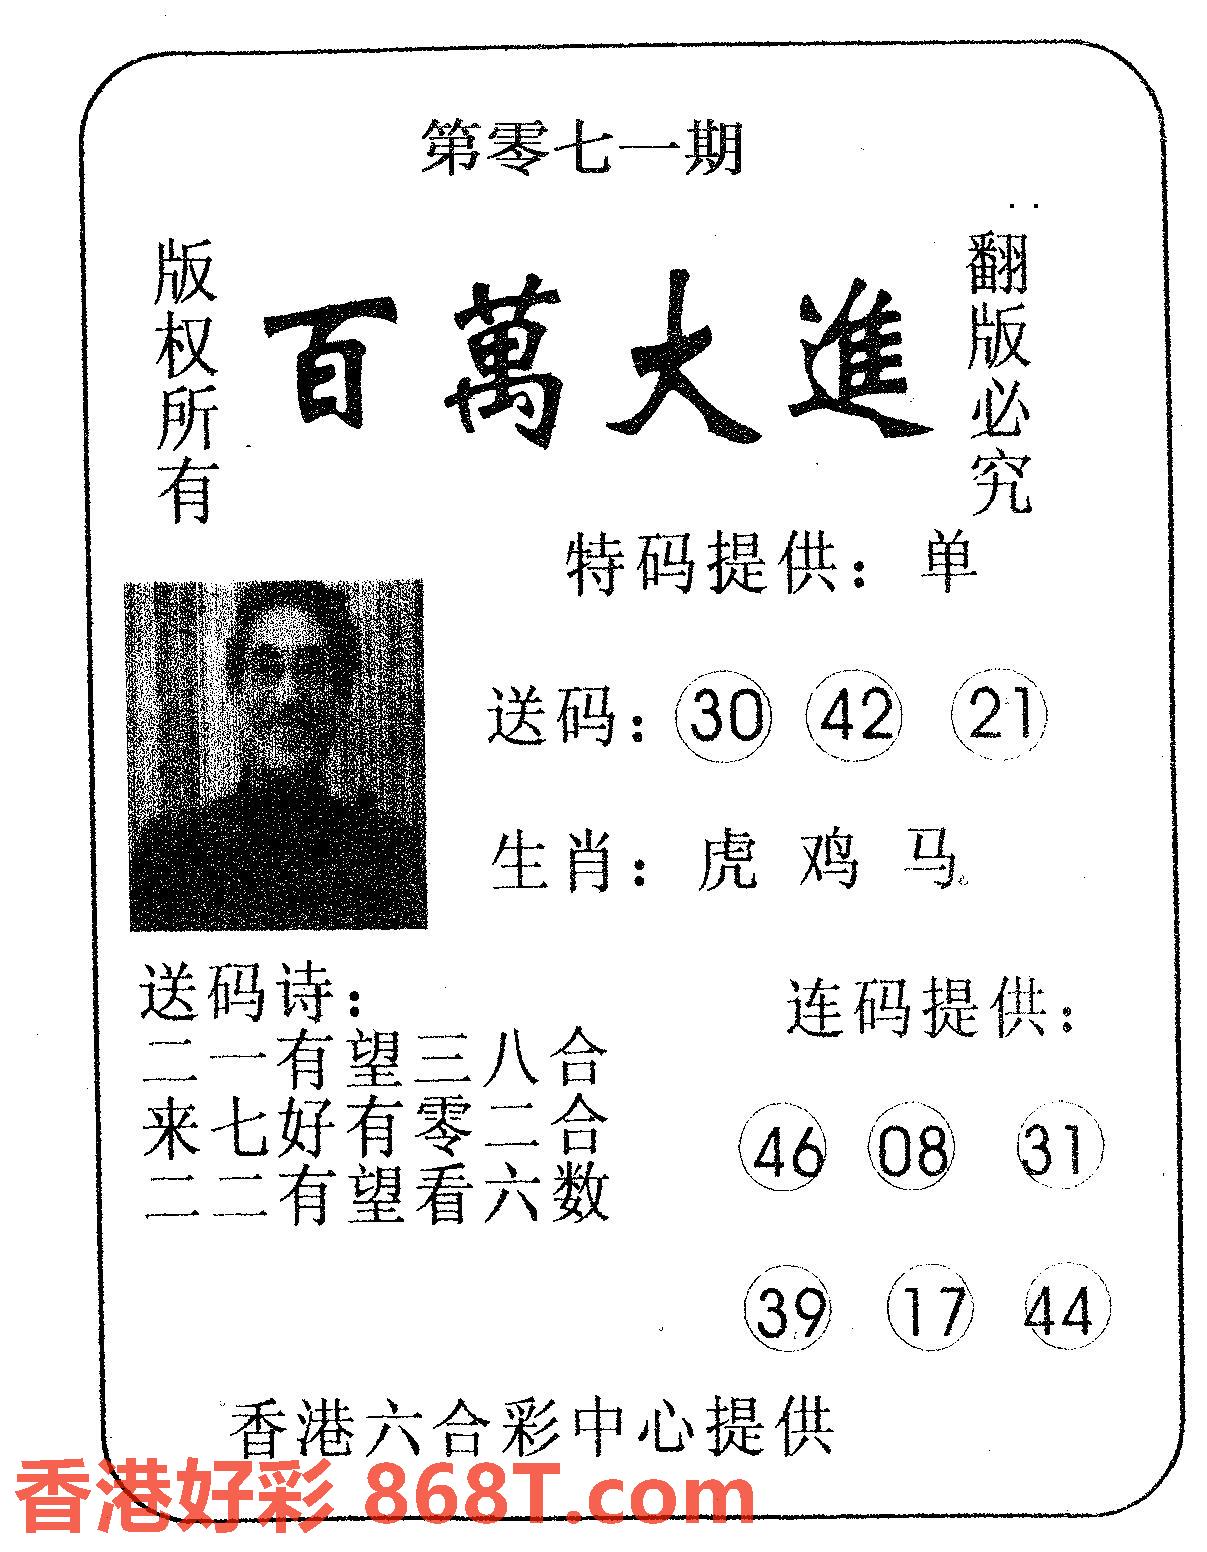 第零七一期
版权所有
百萬大進
翻版必究
特码提供：单
送码：30 42 21
生肖：虎 鸡 马。
送码诗：
二一有望三八合
来七好有零二合
二二有望看六数
连码提供：
46 08 31
39 17 44
香港六合彩中心提供
香港好彩 868T.com